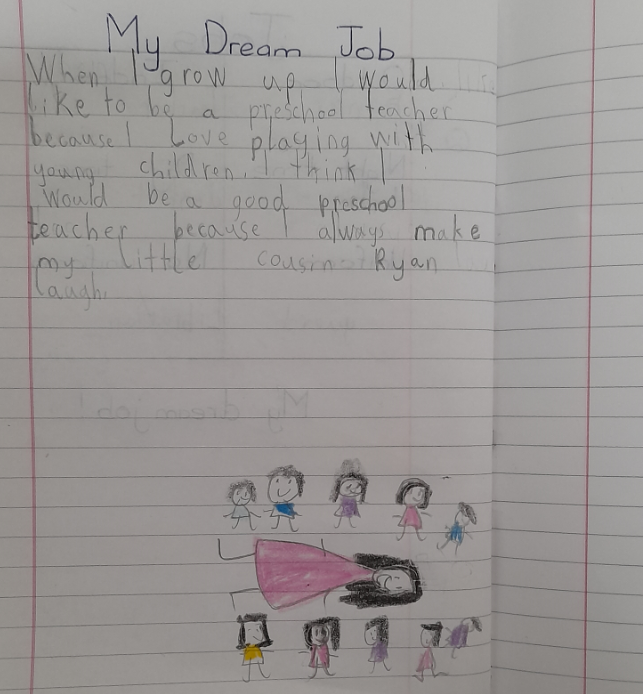 My Dream Job
When I grow up I would
like to be a preschool teacher
because I Love playing with
young children. I think I
would be a good preschool
teacher because I always make
my little cousin Ryan
laugh.
My dream job!